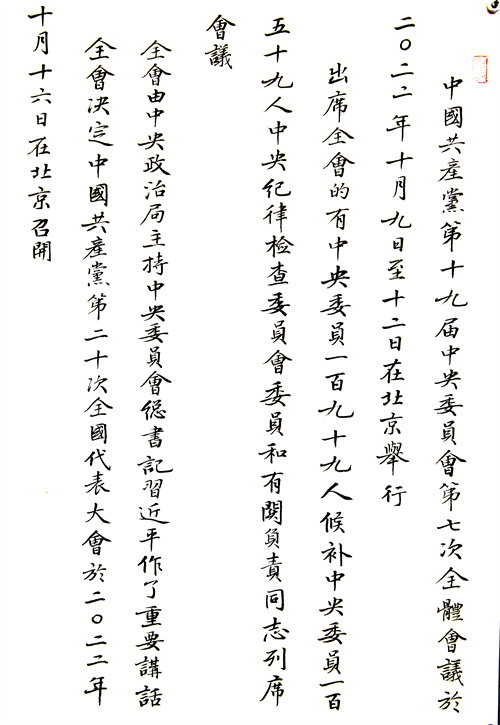 中國共產黨第十九届中央委員會第七次全體會議於
二〇二二年十月九日至十二日在北京舉行
出席全會的有中央委員一百九十九人候补中央委員一百
五十九人中央纪律检查委員會委員和有関負責同志列席
會議
全會由中央政治局主持中央委員會總書記習近平作了重要講話
全會決定中國共產黨第二十次全國代表大會於二〇二二年
十月十六日在北京召開